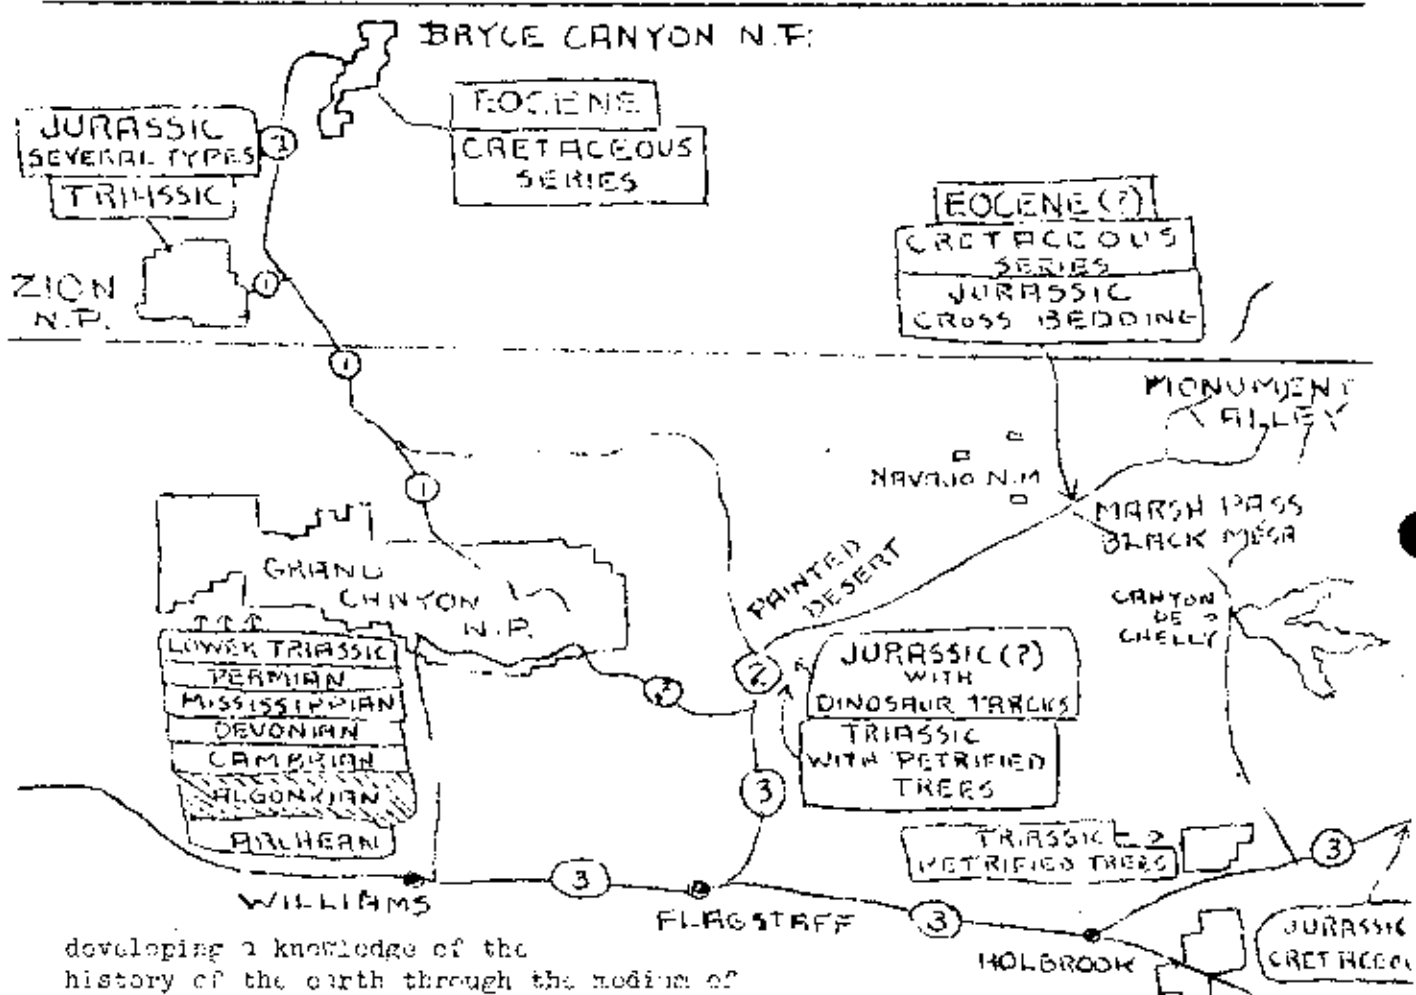 BRYCE CANYON N.P.
EOCENE
CRETACEOUS
SERIES
JURASSIC
SEVERAL TYPES
TRIASSIC
1
ZION
N.P.
1
1
EOCENE (?)
CRETACEOUS
SERIES
JURASSIC
CROSS BEDDING
MONUMENT
VALLEY
NAVAJO N.M
1
MARSH PASS
BLACK MESA
PAINTED
DESERT
CANYON
DE
CHELLY
GRAND
CANYON
N.P.
LOWER TRIASSIC
PERMIAN
MISSISSIPPIAN
DEVONIAN
CAMBRIAN
ALGONKIAN
ARCHEAN
2
2
JURASSIC (?)
WITH
DINOSAUR TARCKS
TRIASSIC
WITH PETRIFIED
TREES
3
TRIASSIC
PETRIFIED TREES
3
WILLIAMS
3
FLAGSTAFF
3
HOLBROOK
JURASSIC
developing a knowledge of the
history of the earth through the medium of